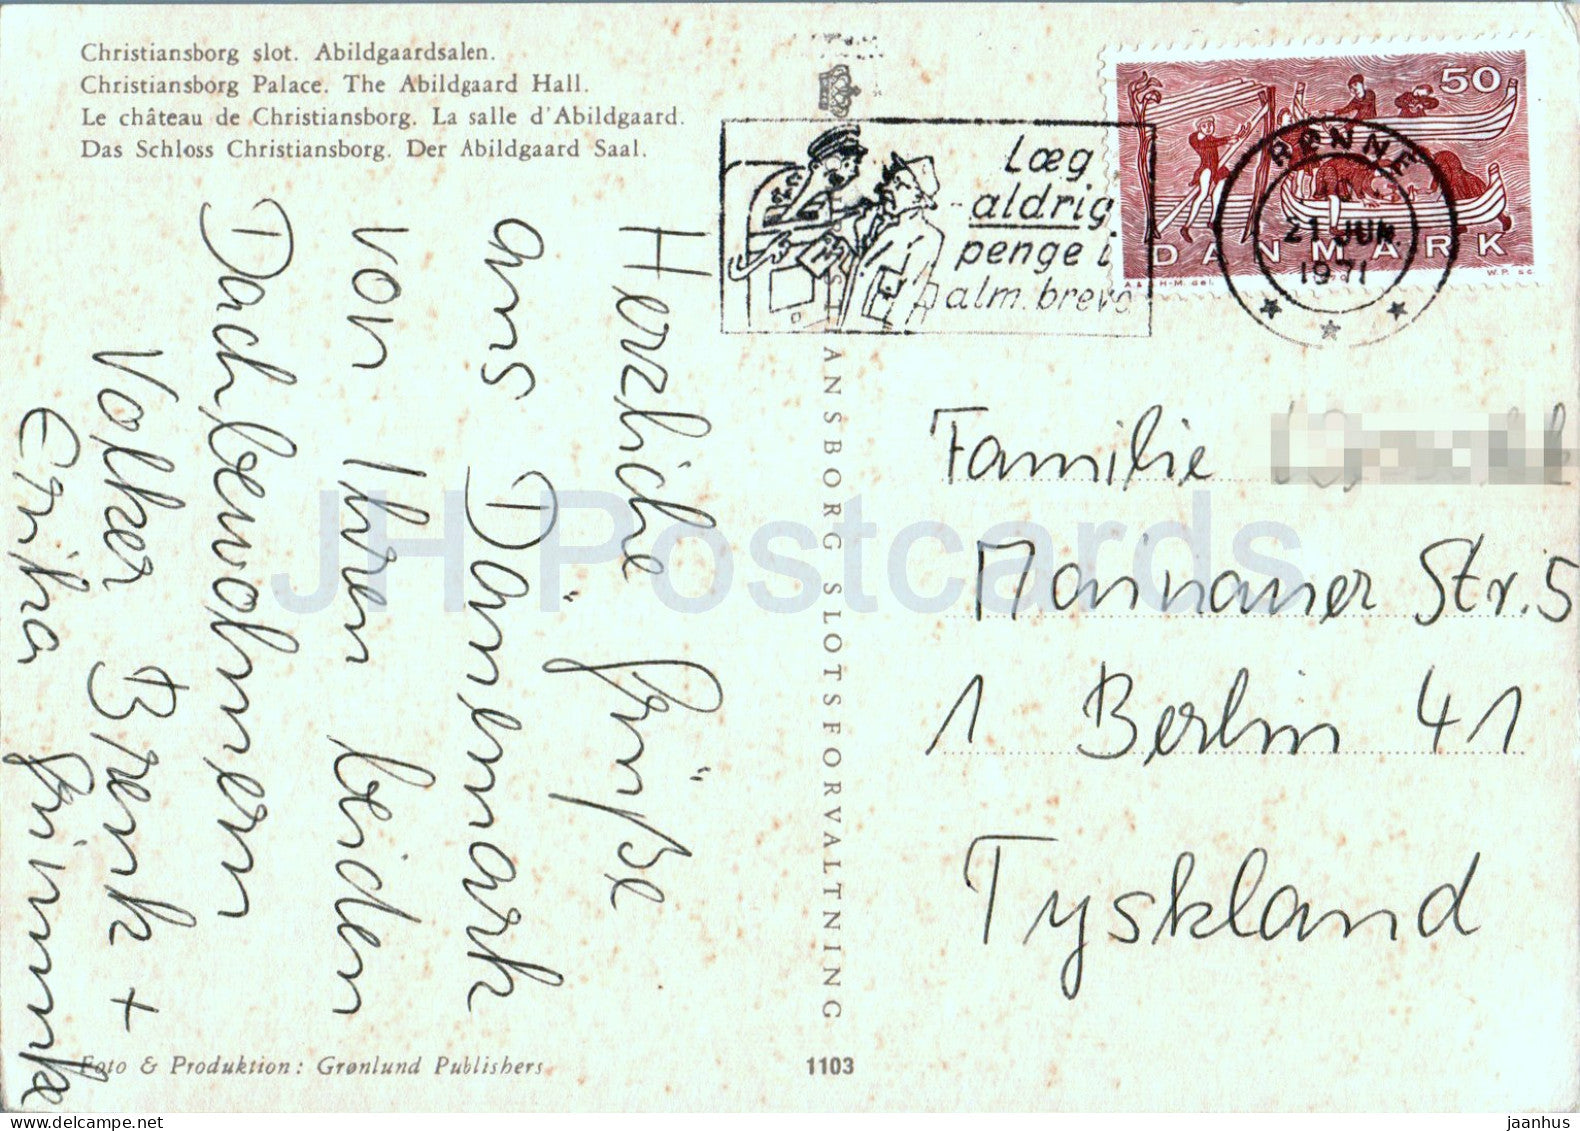 Christiansborg slot. Abildgaardsalen.
Christiansborg Palace. The Abildgaard Hall.
Le château de Christiansborg. La salle d'Abildgaard.
Das Schloss Christiansborg. Der Abildgaard Saal.
Herzliche Grüße
aus Dänemark
von Ihren beiden
Dachbewohnern
Volker Brenk +
Erika
Læg
aldrig
penge i
alm. breve
50
DANMARK
W.P. sc.
RØNNE
21 JUN.
1971
Familie
Mainauer Str. 5
1 Berlin 41
Tyskland
CHRISTIANSBORG SLOTSFORVALTNING
Foto & Produktion: Grønlund Publishers
1103
JH Postcards
delcampe.net
jaanhus